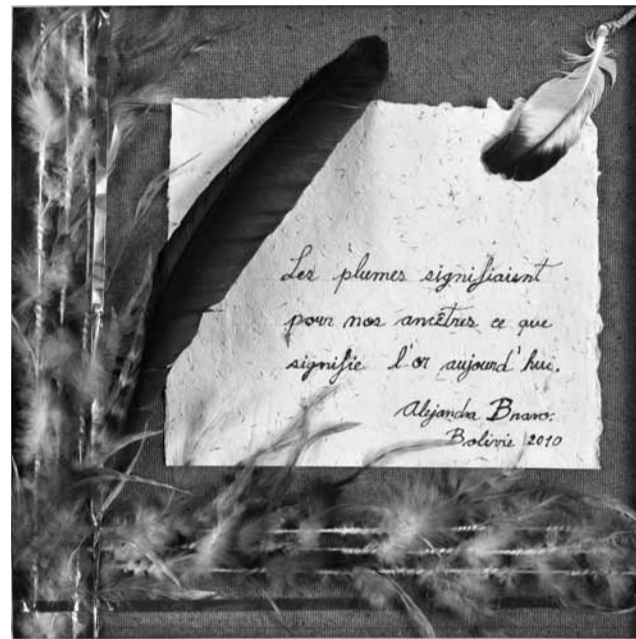 Les plumes signifiaient
pour nos ancêtres ce que
signifie l'or aujourd'hui.
Alejandra Bravo.
Bolivie 2010